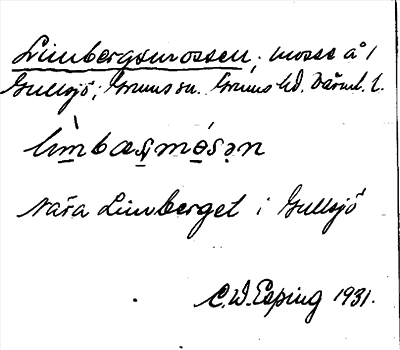 Limbergsmossen; mosse å 1
Gullsjö; Grums sn. Grums hd. Värml. l.
lìmbæṣmósən
nära Limberget i Gullsjö
C.W. Esping 1931.